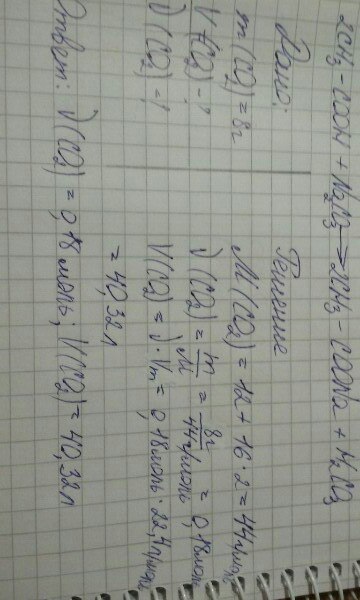 2CH₃-COOH + Na₂CO₃ → 2CH₃-COONa + H₂CO₃
Дано:
m(CO₂) = 8г
V(CO₂) - ?
ν(CO₂) - ?
Решение
M(CO₂) = 12 + 16 · 2 = 44г/моль
ν(CO₂) = m/M = 8г/44г/моль = 0,18моль
V(CO₂) = ν · Vm = 0,18моль · 22,4л/моль
= 40,32л
Ответ: ν(CO₂) = 0,18моль; V(CO₂) = 40,32л